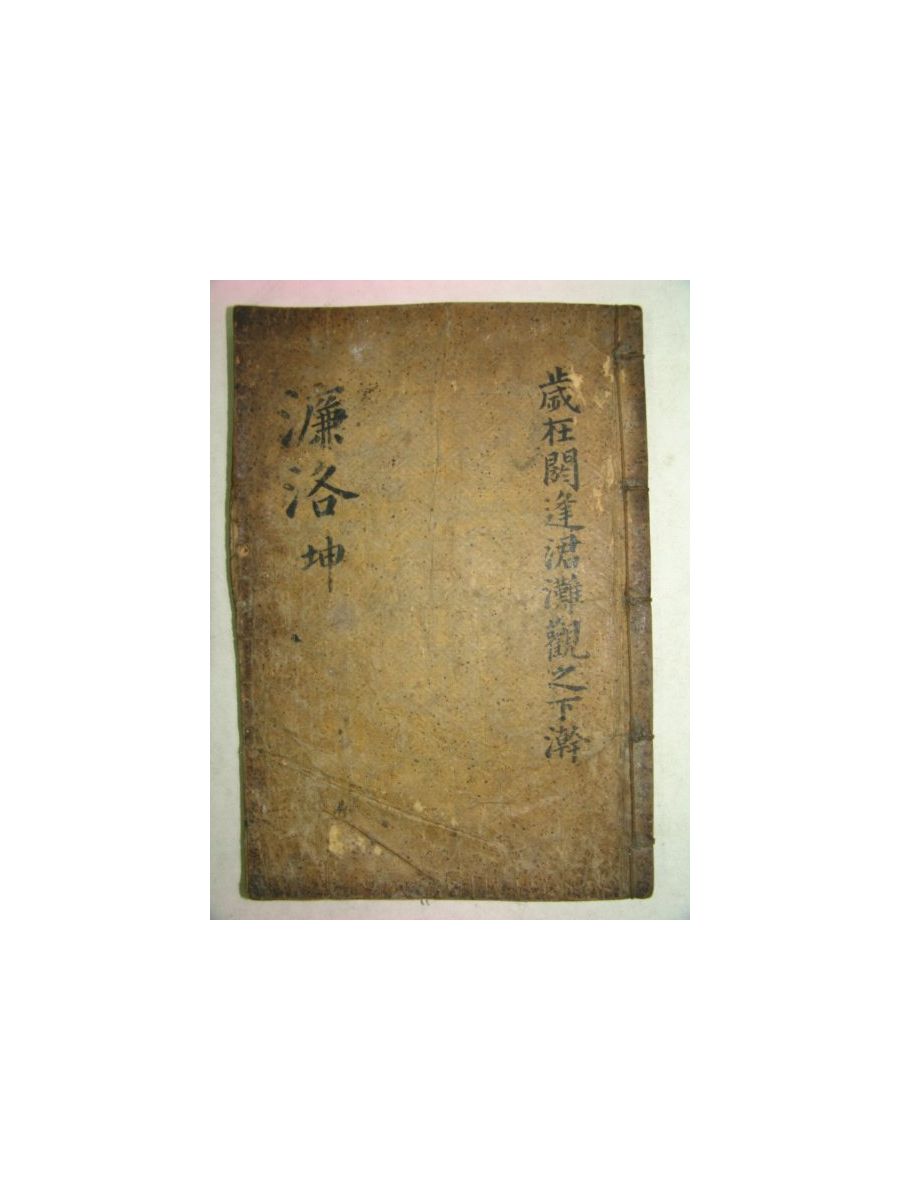 歲在閼逢涒灘觀之下澣
濂洛坤